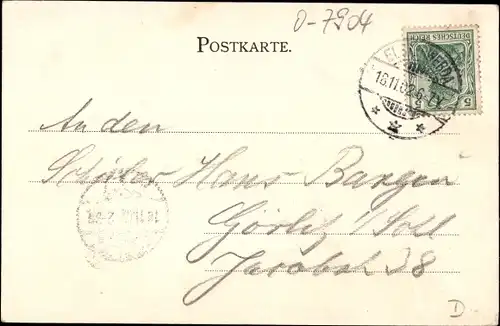 0-7904
POSTKARTE.
DEUTSCHES REICH
5
18.11.02.6-7
An den
Schüler Hans Bargen
Görlitz i/Schl
Jacobstr 38
D